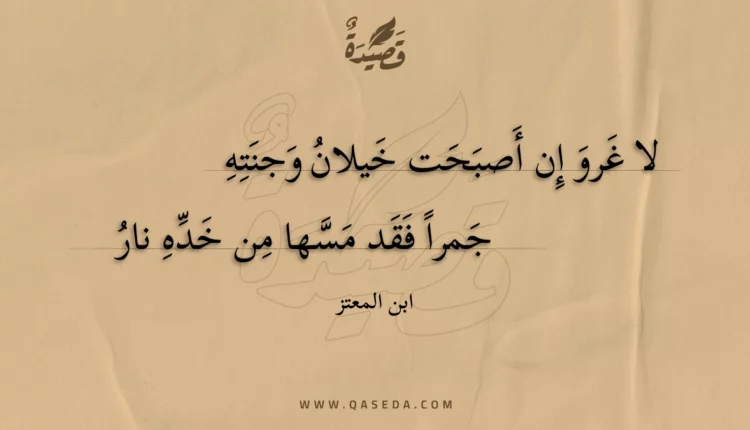 قَصِيدَةٌ
لا غَروَ إِن أَصبَحَت خَيلانُ وَجنَتِهِ
جَمراً فَقَد مَسَّها مِن خَدِّهِ نارُ
ابن المعتز
WWW.QASEDA.COM